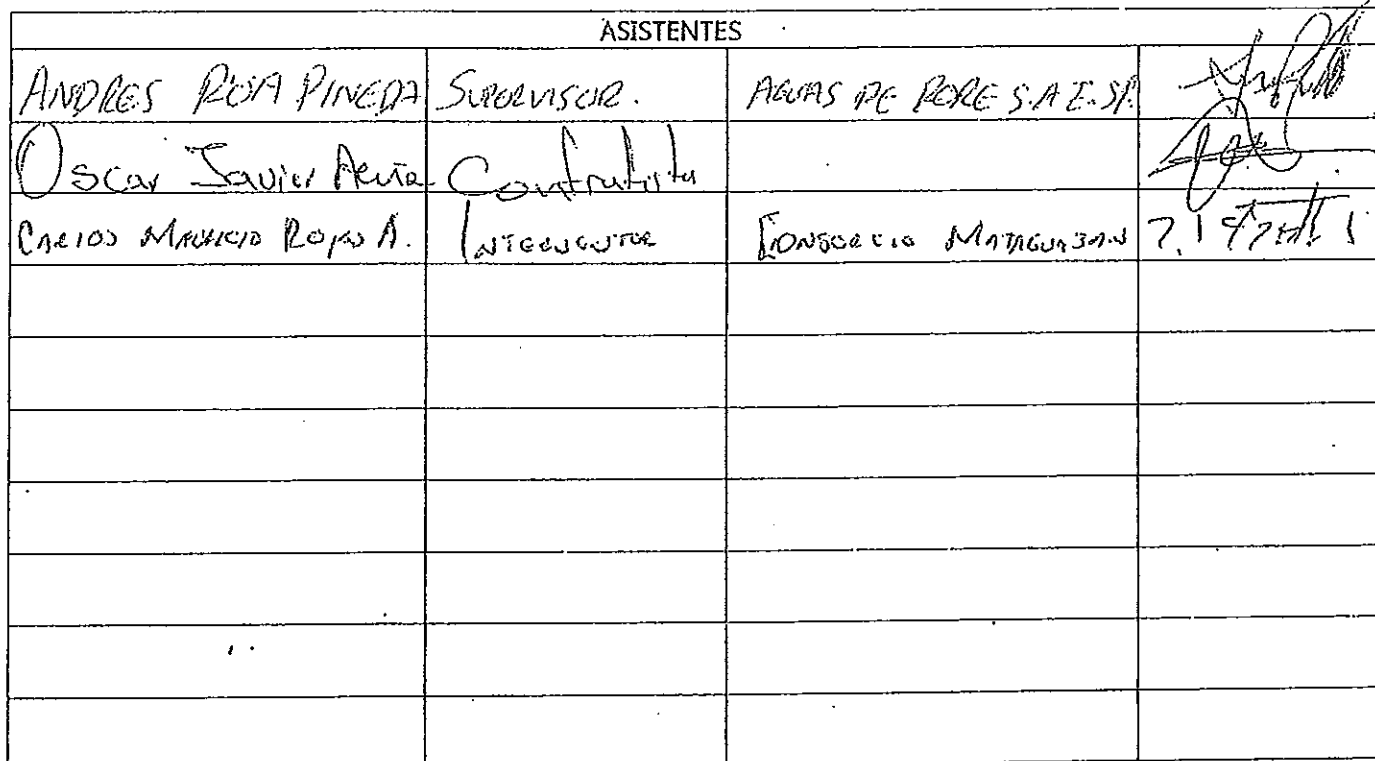 ASISTENTES
ANDRES ROA PINEDA SUPERVISOR. AGUAS DE PORE S.A E.SP.
Oscar Javier Contratista
CARLOS MAURICIO ROJAS A. INTERVENTOR CONSORCIO